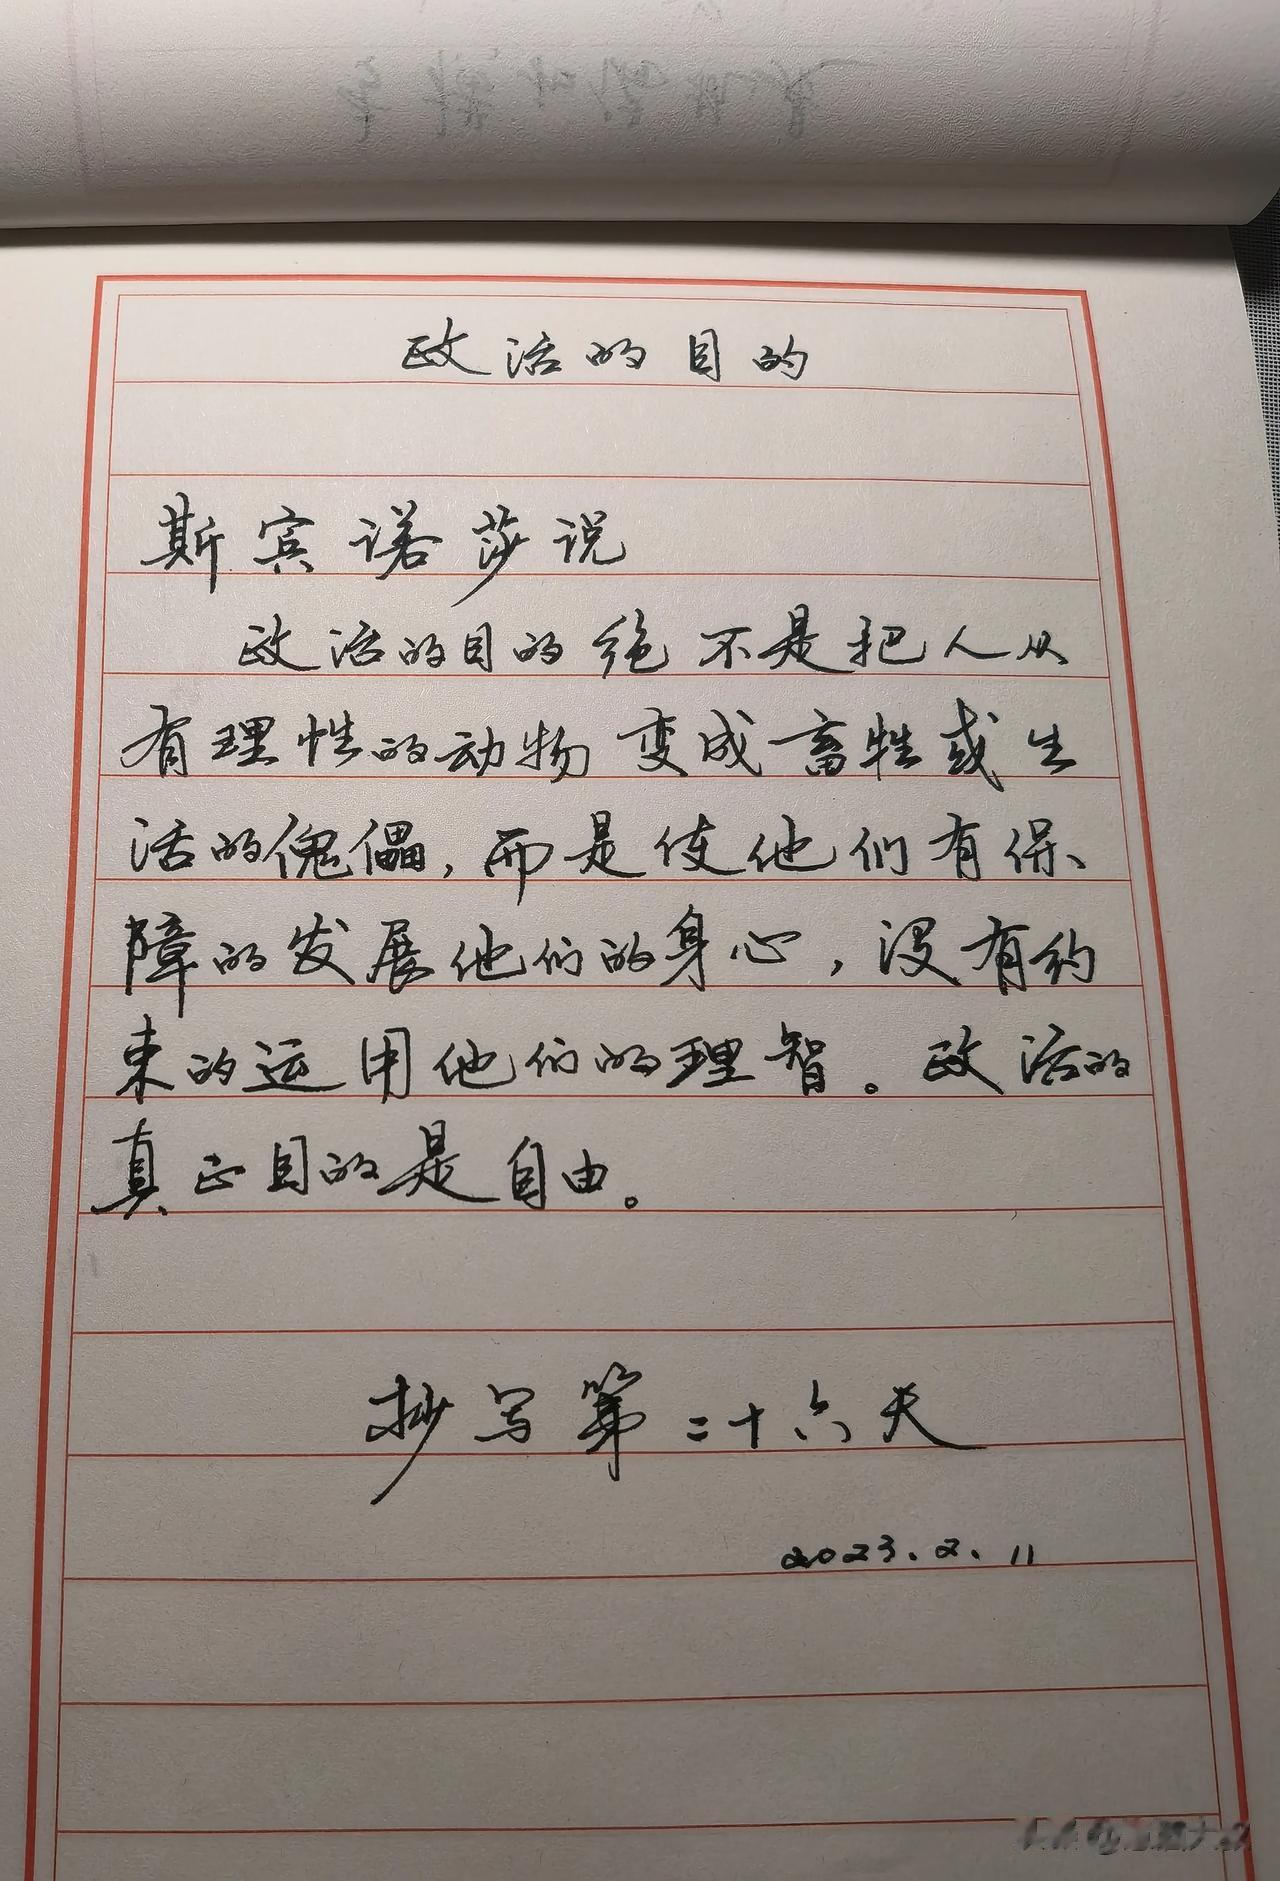 政治的目的
斯宾诺莎说
政治的目的绝不是把人从
有理性的动物变成畜牲或生
活的傀儡，而是使他们有保、
障的发展他们的身心，没有约
束的运用他们的理智。政治的
真正目的是自由。
抄写第二十六天
2023.2.11